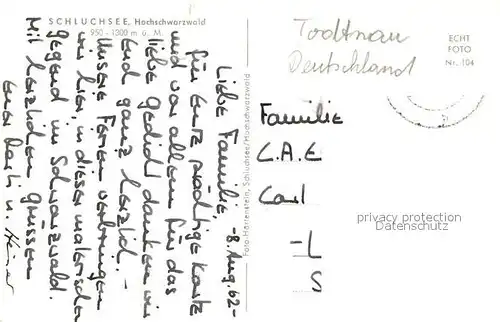 SCHLUCHSEE, Hochschwarzwald
950 - 1300 m ü. M.
-8. Aug. 62-
Liebe Familie,
für Eure prächtige Karte
und vor allem für das
liebe Gedicht danken wir
Euch ganz herzlich. -
Unsere Ferien verbringen
wir hier, in dieser malerischen
Gegend im Schwarzwald.
Mit herzlichen Grüssen
Eure u.
Foto-Harrenstein, Schluchsee/Hochschwarzwald
Todtnau
Deutschland
ECHT
FOTO
Nr. 104
Familie
C.A.E
Carl
-L
S
privacy protection
Datenschutz